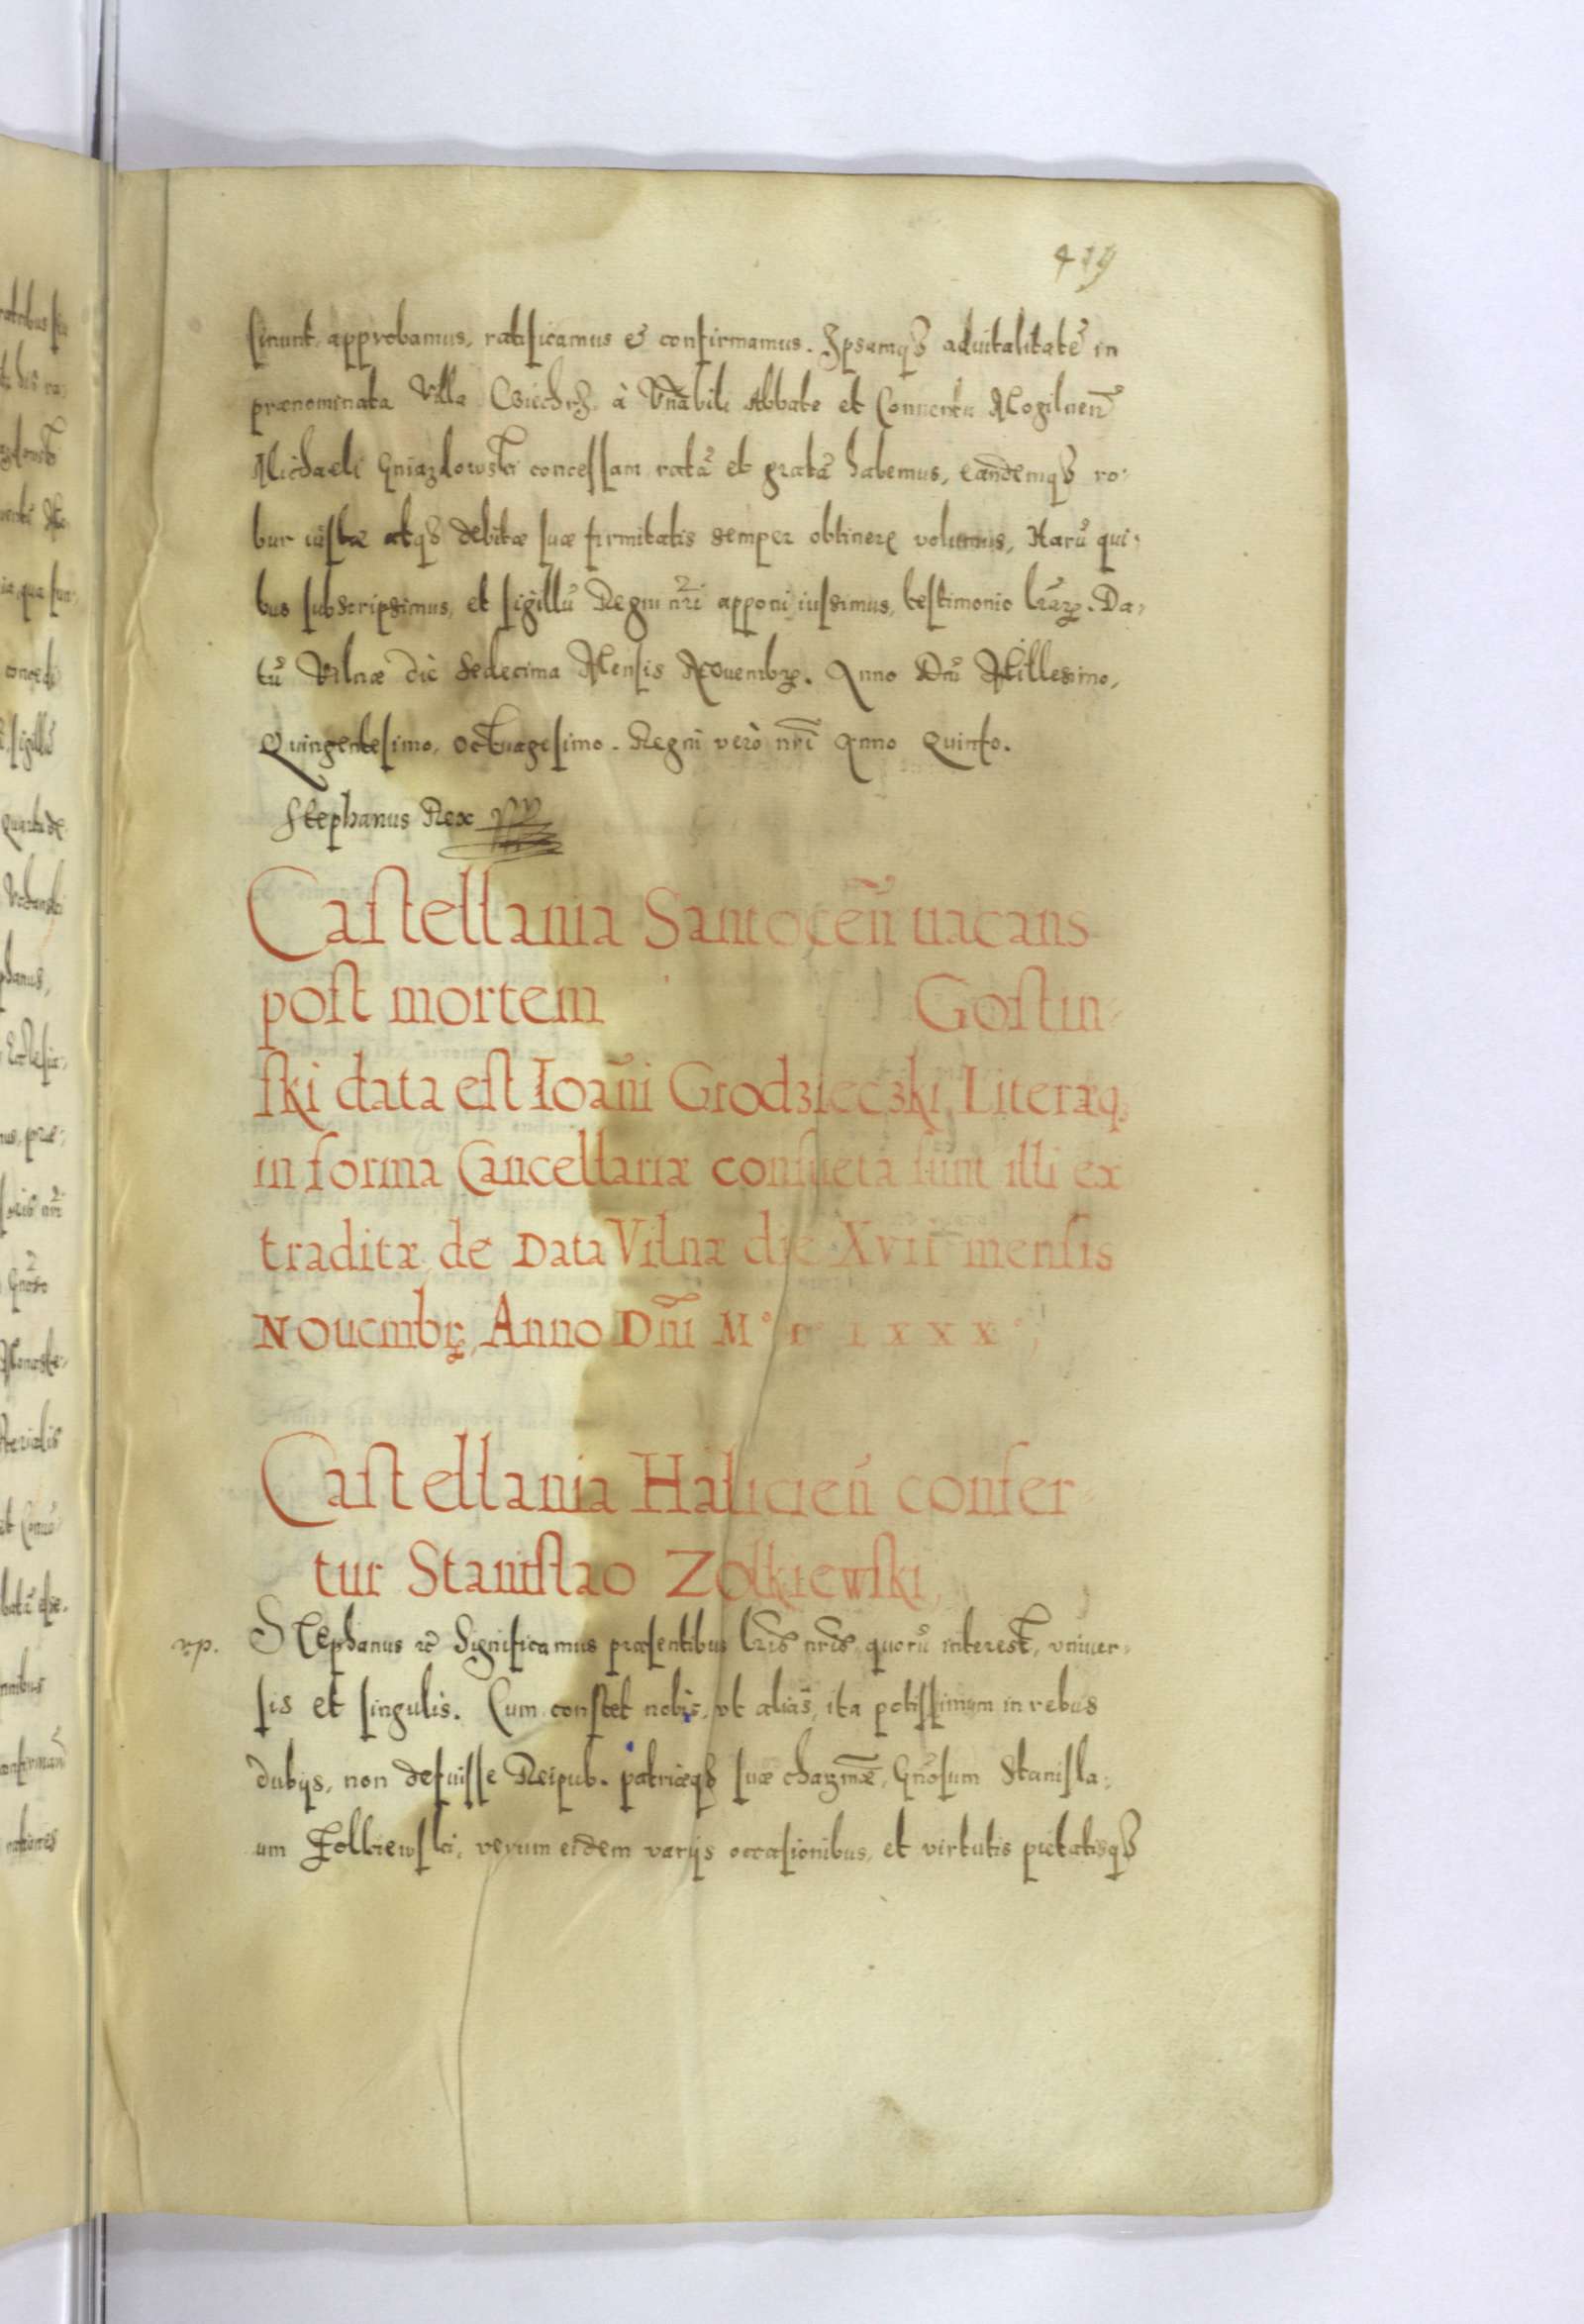 419
sinunt, approbamus, ratificamus et confirmamus. Ipsamq₃ aduitalitatē in
prænominata Villa à Vn̄abili Abbate et Conuentu Mogilneñ
Michaeli Gniazdowski concessam ratā et gratā habemus, eandemq₃ ro-
bur iustæ atq₃ debitæ suæ firmitatis semper obtinere volumus, Harū qui-
bus subscripsimus, et sigillū Regni nr̄i apponi iussimus, testimonio lrāꝝ. Da-
tū Vilnæ die Sedecima Mensis Nouembꝝ. Anno Dn̄i Millesimo,
Quingentesimo, Octuagesimo. Regni verò nr̄i Anno Quinto.
Stephanus Rex
Castellania Santoceñ uacans
post mortem Gostin-
ski data est Ioañi Grodzieczki, Literæq₃
in forma Cancellariæ consueta sunt illi ex
traditæ, de Data Vilnæ die XVII mensis
Nouembꝝ, Anno Dn̄i M° LXXX°
Castellania Halicieñ confer-
tur Stanislao Zolkiewski,
Stephanus rc̄ Significamus præsentibus lr̄is nr̄is, quorū interest, vniuer-
sis et singulis. Cum constet nobis, vt aliàs, ita potissimum in rebus
dubijs, non defuisse Reipub. patriæq₃ suæ charissmæ, Gn̄osum Stanisla-
um Zolkiewski, verum eidem varijs occasionibus, et virtutis pietatisq₃